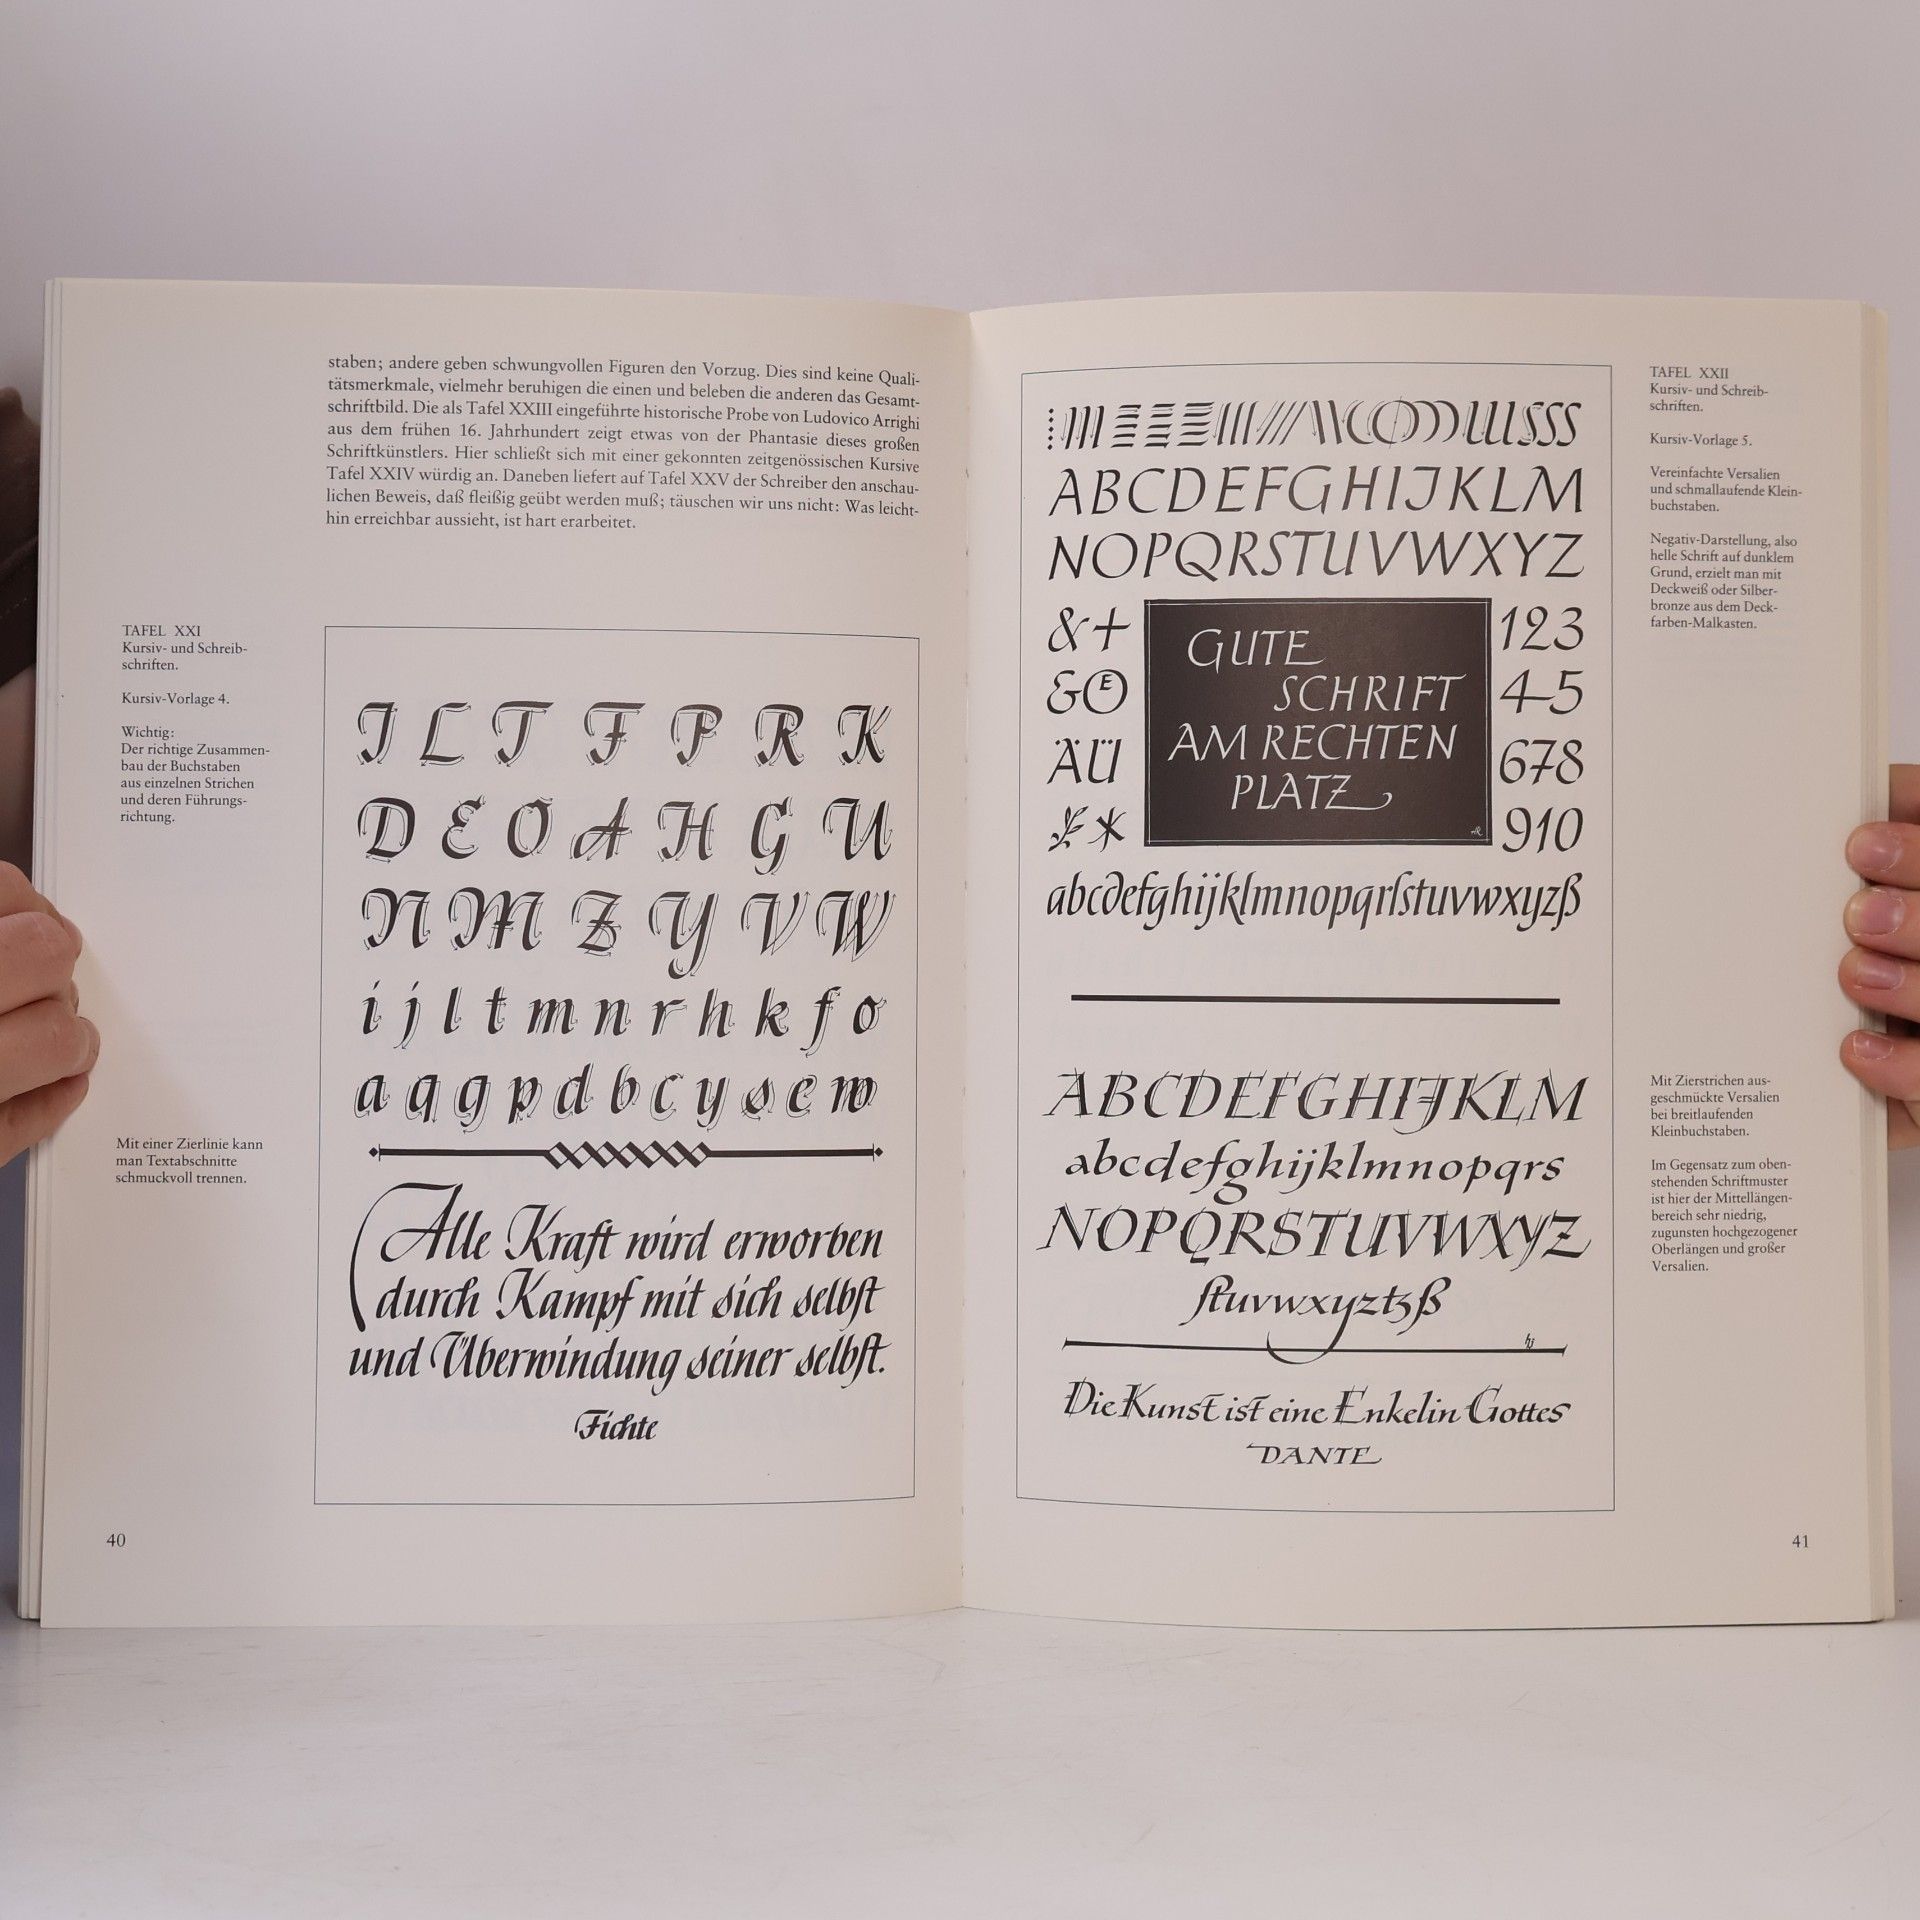 staben; andere geben schwungvollen Figuren den Vorzug. Dies sind keine Quali-
tätsmerkmale, vielmehr beruhigen die einen und beleben die anderen das Gesamt-
schriftbild. Die als Tafel XXIII eingeführte historische Probe von Ludovico Arrighi
aus dem frühen 16. Jahrhundert zeigt etwas von der Phantasie dieses großen
Schriftkünstlers. Hier schließt sich mit einer gekonnten zeitgenössischen Kursive
Tafel XXIV würdig an. Daneben liefert auf Tafel XXV der Schreiber den anschau-
lichen Beweis, daß fleißig geübt werden muß; täuschen wir uns nicht: Was leicht-
hin erreichbar aussieht, ist hart erarbeitet.
TAFEL XXI
Kursiv- und Schreib-
schriften.
Kursiv-Vorlage 4.
Wichtig:
Der richtige Zusammen-
bau der Buchstaben
aus einzelnen Strichen
und deren Führungs-
richtung.
Mit einer Zierlinie kann
man Textabschnitte
schmuckvoll trennen.
I L T F P R K
D E O A H G U
N M Z Y V W
i j l t m n r h k f o
a q g p d b c y s e w
Alle Kraft wird erworben
durch Kampf mit sich selbſt
und Überwindung seiner selbſt.
Fichte
40
ABCDEFGHIJKLM
NOPQRSTUVWXYZ
&+
&
ÄÜ
*
GUTE
SCHRIFT
AM RECHTEN
PLATZ
123
4-5
678
910
abcdefghijklmnopqrſstuvwxyzß
ABCDEFGHIJKLM
abcdefghijklmnopqrs
NOPQRSTUVWXYZ
ſtuvwxyztzß
hj
Die Kunst ist eine Enkelin Gottes
DANTE
TAFEL XXII
Kursiv- und Schreib-
schriften.
Kursiv-Vorlage 5.
Vereinfachte Versalien
und schmallaufende Klein-
buchstaben.
Negativ-Darstellung, also
helle Schrift auf dunklem
Grund, erzielt man mit
Deckweiß oder Silber-
bronze aus dem Deck-
farben-Malkasten.
Mit Zierstrichen aus-
geschmückte Versalien
bei breitlaufenden
Kleinbuchstaben.
Im Gegensatz zum oben-
stehenden Schriftmuster
ist hier der Mittellängen-
bereich sehr niedrig,
zugunsten hochgezogener
Oberlängen und großer
Versalien.
41